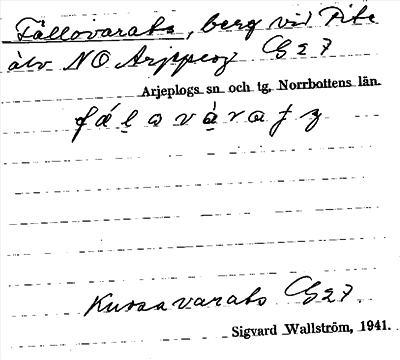 Fällovarats, berg vid Pite
älv NO Arjeplog G 27
Arjeplogs sn. och tg. Norrbottens län.
Kursavarats G 27.
Sigvard Wallström, 1941.